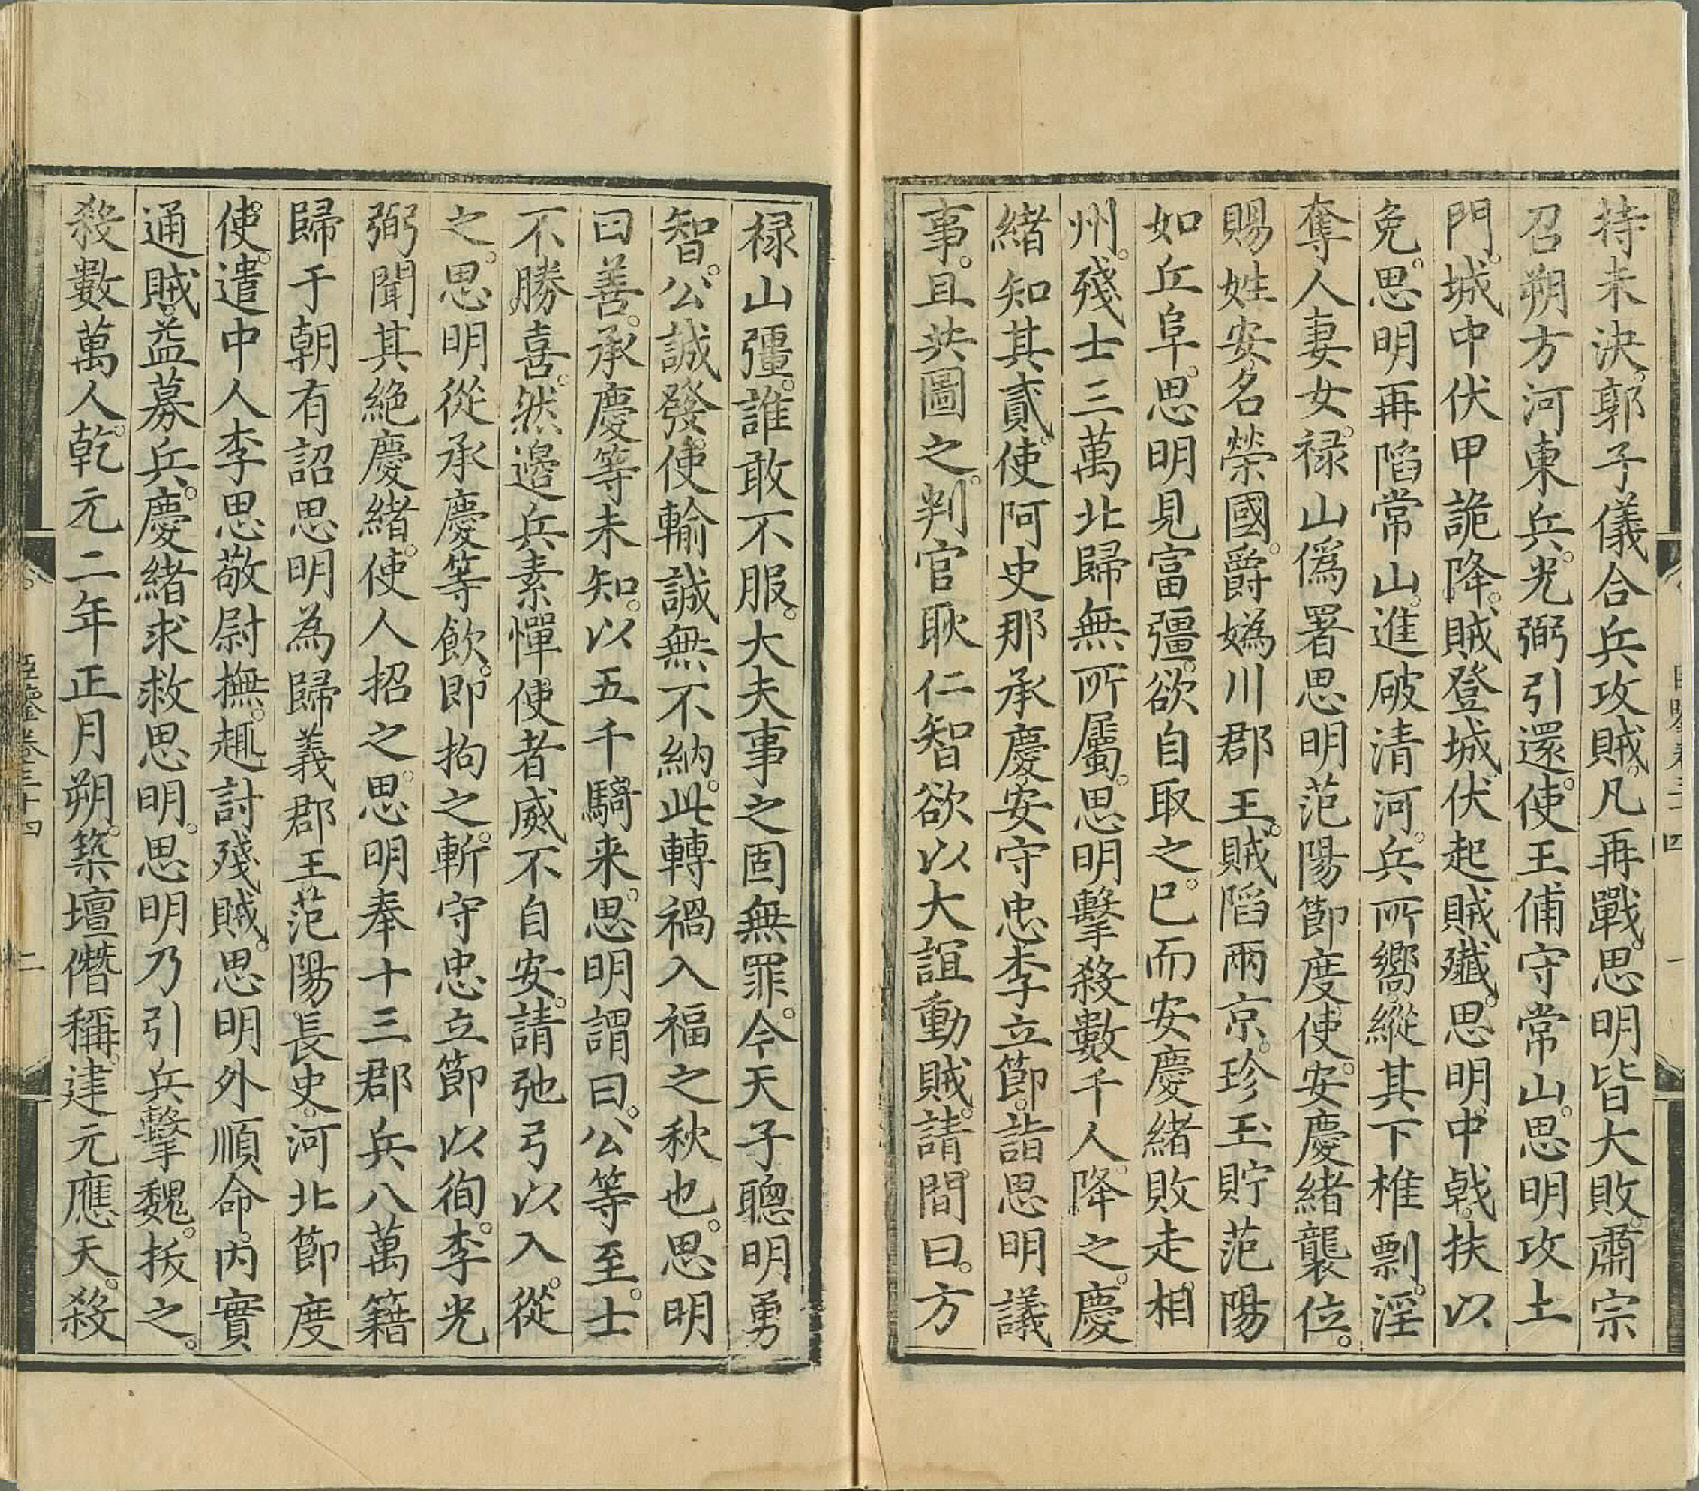 持未決。郭子儀合兵攻賊。凡再戰。思明皆大敗。肅宗
召朔方河東兵。光弼引還。使王俌守常山。思明攻土
門。城中伏甲詭降。賊登城伏起賊殲。思明中戟。扶以
免。思明再陷常山。進破清河。兵所嚮縱其下椎剽。淫
奪人妻女。祿山僞署思明范陽節度使。安慶緒襲位。
賜姓安名榮國。爵媯川郡王。賊陷兩京。珍玉貯范陽
如丘阜。思明見富彊。欲自取之。已而安慶緒敗走相
州。殘士三萬北歸無所屬。思明擊殺數千人。降之。慶
緒知其貳。使阿史那承慶安守忠李立節。詣思明議
事。且共圖之。判官耿仁智欲以大誼動賊。請間曰。方
祿山彊。誰敢不服。大夫事之固無罪。今天子聰明勇
智。公誠發使輸誠無不納。此轉禍入福之秋也。思明
曰善。承慶等未知。以五千騎来。思明謂曰。公等至。士
不勝喜。然邊兵素憚使者威不自安。請弛弓以入。從
之。思明從承慶等飲。即拘之。斬守忠立節以徇。李光
弼聞其絶慶緒。使人招之。思明奉十三郡兵八萬籍
歸于朝有詔思明為歸義郡王范陽長史。河北節度
使。遣中人李思敬尉撫。趣討殘賊。思明外順命。内實
通賊。益募兵。慶緒求救思明。思明乃引兵擊魏。拔之。
殺數萬人。乾元二年正月朔。築壇僭稱。建元應天。殺
卷三十四
二